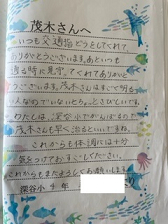 茂木さんへ
いつも交通指どうをしてくれて、
ありがとうございます。あといつも
通る時に見守ってくれてありがと
うございます。茂木さんはすごく明る
い人なので
わたしは、深谷小だから
茂木さんも早く治るといいですね。
これからも体調には十分
気をつけておすごしください。
これからもまたよろしくお願いします。
深谷小 4年